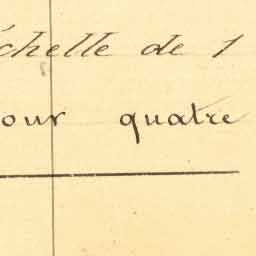 échelle de 1
our quatre